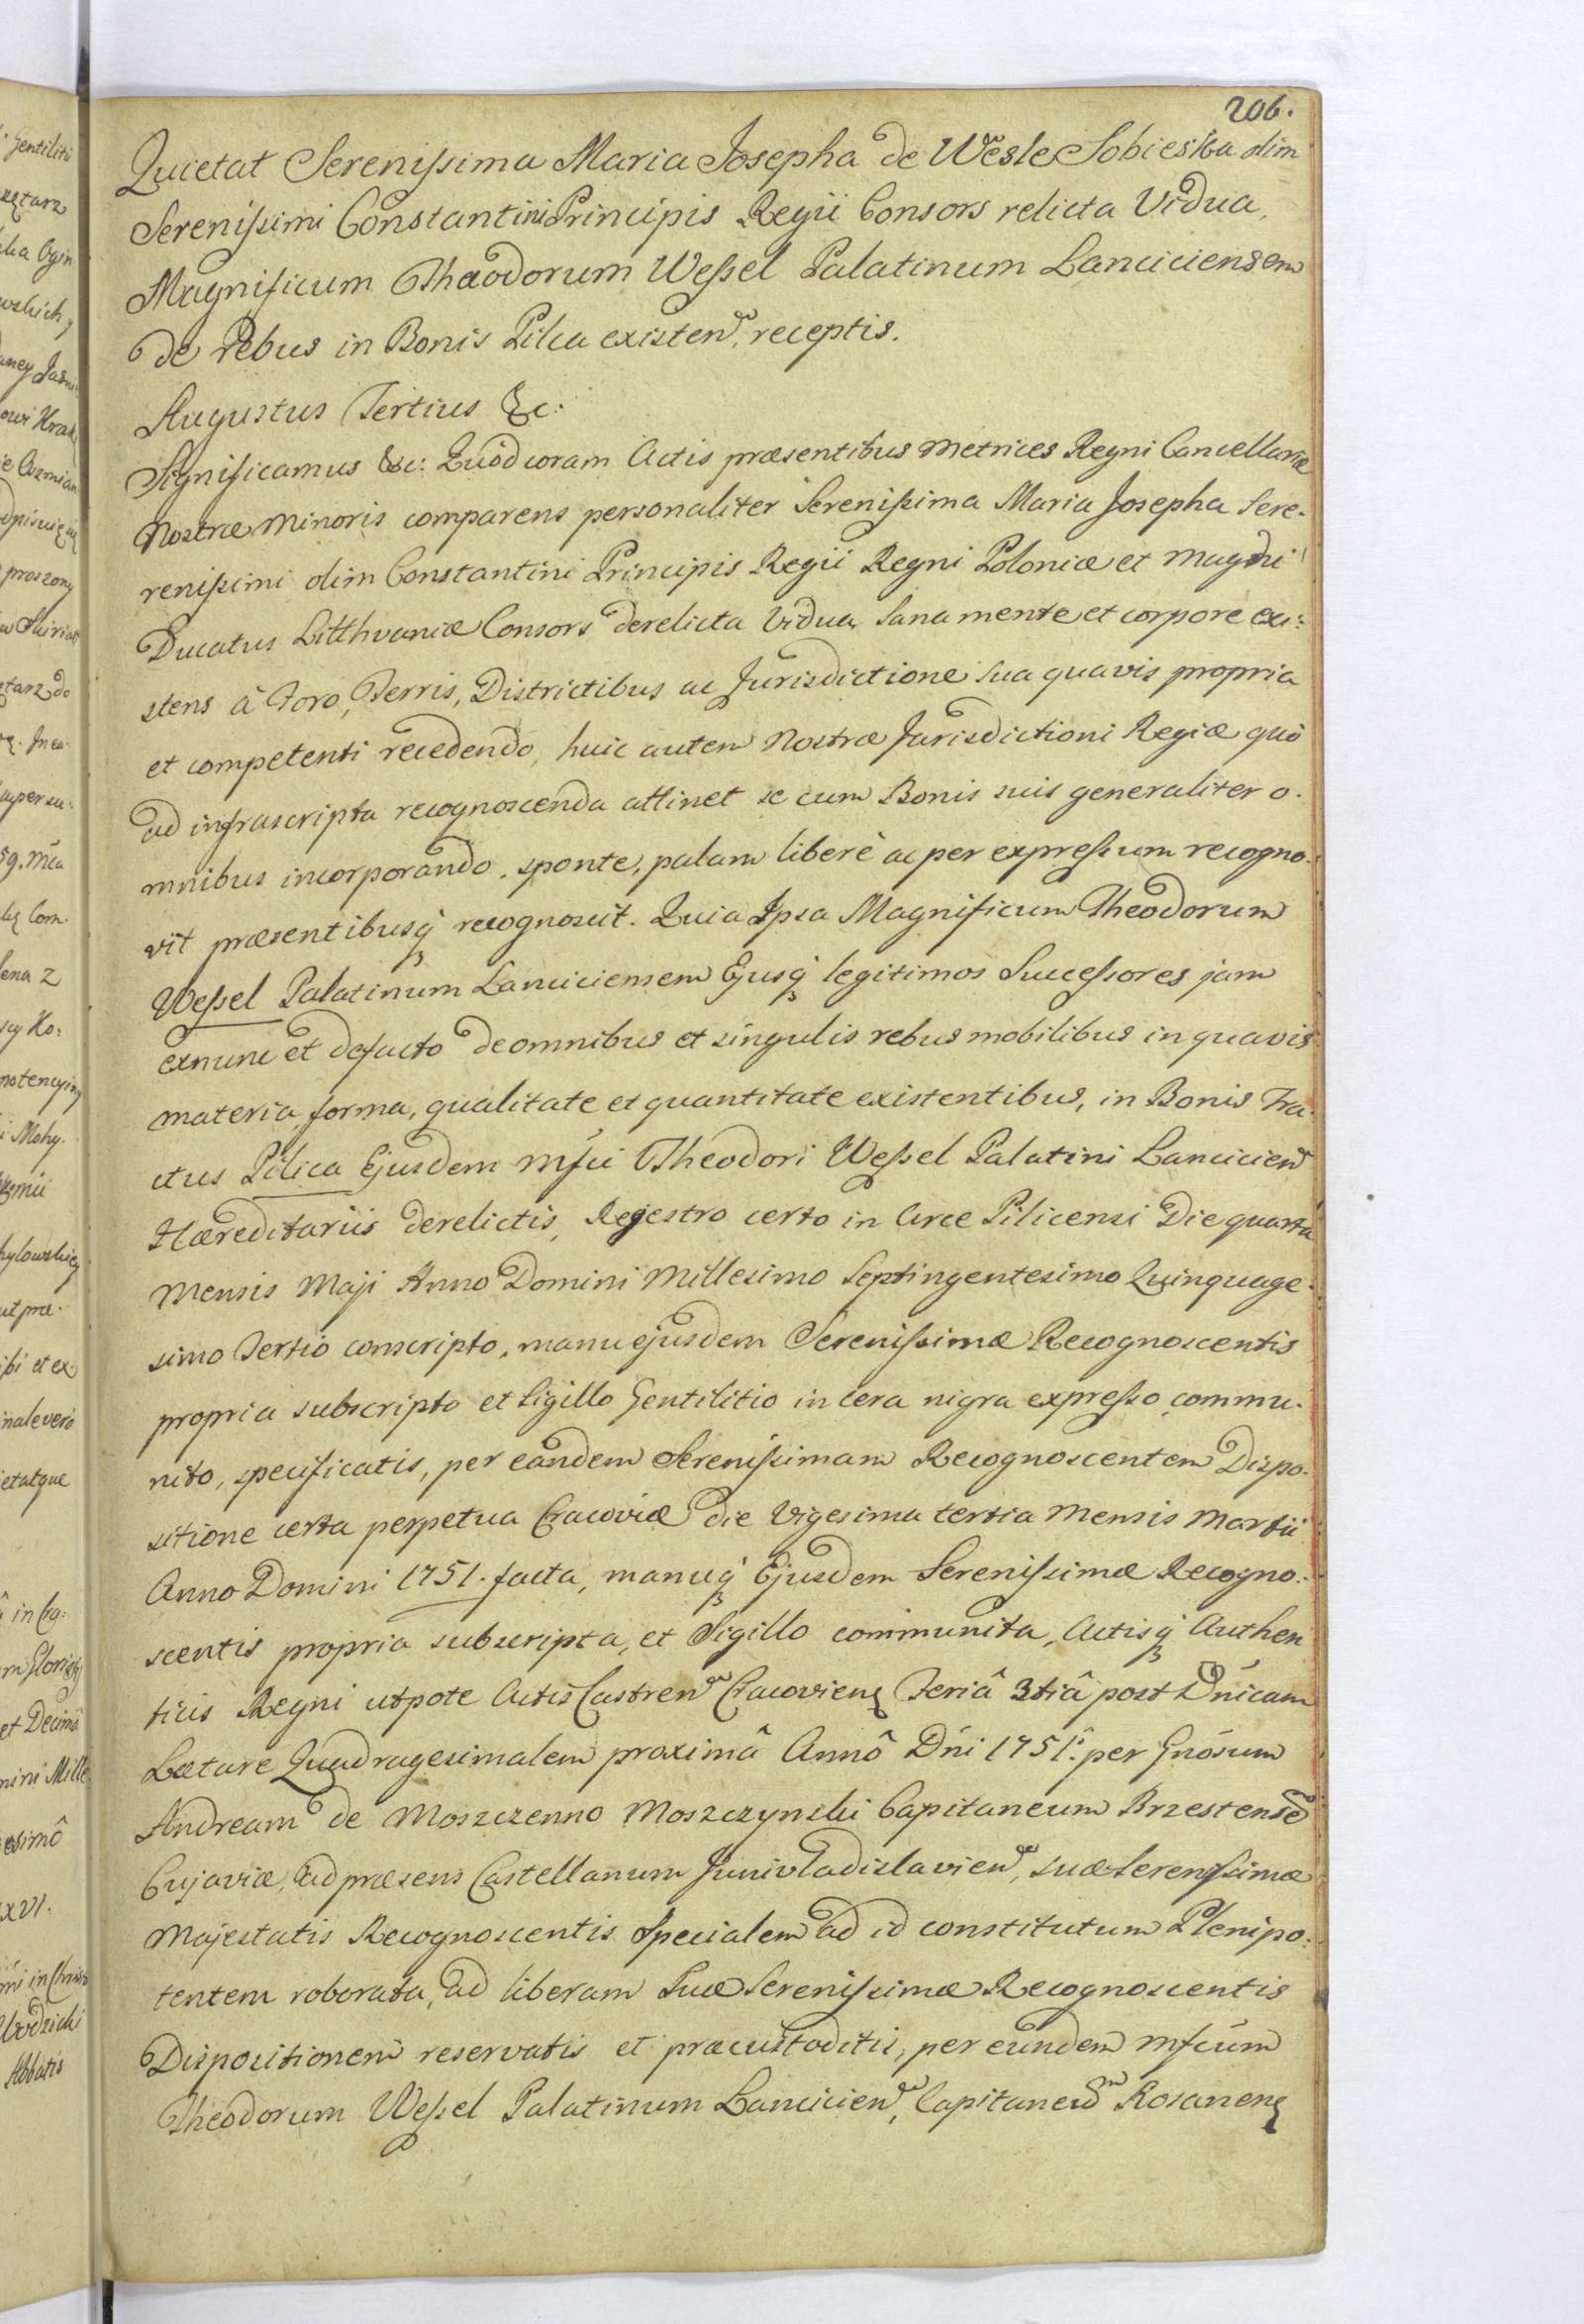 206.
Quietat Serenissima Maria Josepha de Wesle Sobieska olim
Serenissimi Constantini Principis Regii Consors relicta Vidua,
Magnificum Thaodorum Wessel Palatinum Lanciciensem
de rebus in Bonis Pilca existen. receptis.
Augustus Tertius &c:
Significamus &c: Quod coram Actis præsentibus Metrices Regni Cancellariæ
Nostræ Minoris comparens personaliter Serenissima Maria Josepha Sere-
renissimi olim Constantini Principis Regii Regni Poloniæ et Magni
Ducatus Litthvaniæ Consors derelicta Vidua, sana mente et corpore exi:
stens à Foro, Terris, Districtibus ac Jurisdictione sua quavis propria
et competenti recedendo, huic autem Nostræ Jurisdictioni Regiæ quò
ad infrascripta recognoscenda attinet se cum Bonis suis generaliter o-
mnibus incorporando, sponte, palam liberè ac per expressum recogno-
vit præsentibusq recognoscit. Quia Ipsa Magnificum Theodorum
Wessel Palatinum Lanciciensem Ejusq legitimos Successores jam
exnunc et defacto de omnibus et singulis rebus mobilibus in quavis
materia, forma, qualitate et quantitate existentibus, in Bonis Tra-
ctus Pilica Ejusdem Mfci Theodori Wessel Palatini Lancicien
Hæreditariis derelictis, Regestro certo in Arce Pilicensi Die quarta
Mensis Maji Anno Domini Millesimo Septingentesimo Quinquage-
simo Tertio conscripto, manu ejusdem Serenissimæ Recognoscentis
propria subscripto et Sigillo Gentilitio in cera nigra expresso commu-
nito, specificatis, per eandem Serenissimam Recognoscentem Dispo-
sitione certa perpetua Cracoviæ die Vigesima tertia Mensis Martii
Anno Domini 1751. facta, manuq Ejusdem Serenissimæ Recogno:
scentis propria subscripta, et Sigillo communita, Actisq Authen
ticis Regni utpote Actis Castren Cracovien Feriâ 3tiâ post Dnicam
Lætare Quadragesimalem proximâ Annô Dni 1751. per Gnosum
Andream de Moszczenno Moszczynski Capitaneum Brzestense
Cujaviæ, ad præsens Castellanum Junivladislavien, suæ Serenissimæ
Majestatis Recognoscentis Specialem ad id constitutum Plenipo:
tentem roborata, ad liberam Suæ Serenissimæ Recognoscentis
Dispositionem reservatis et præcustoditis, per eundem Mfcum
Theodorum Wessel Palatinum Lancicien, Capitaneum Rosanen